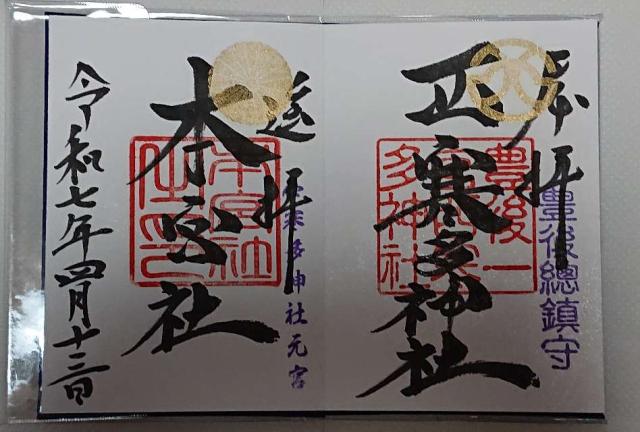 奉拝
豊後總鎮守
豊後一
宮西寒
多神社
西寒多神社
遥拝
西寒多神社元宮
本宮社
本宮社
令和七年四月十三日